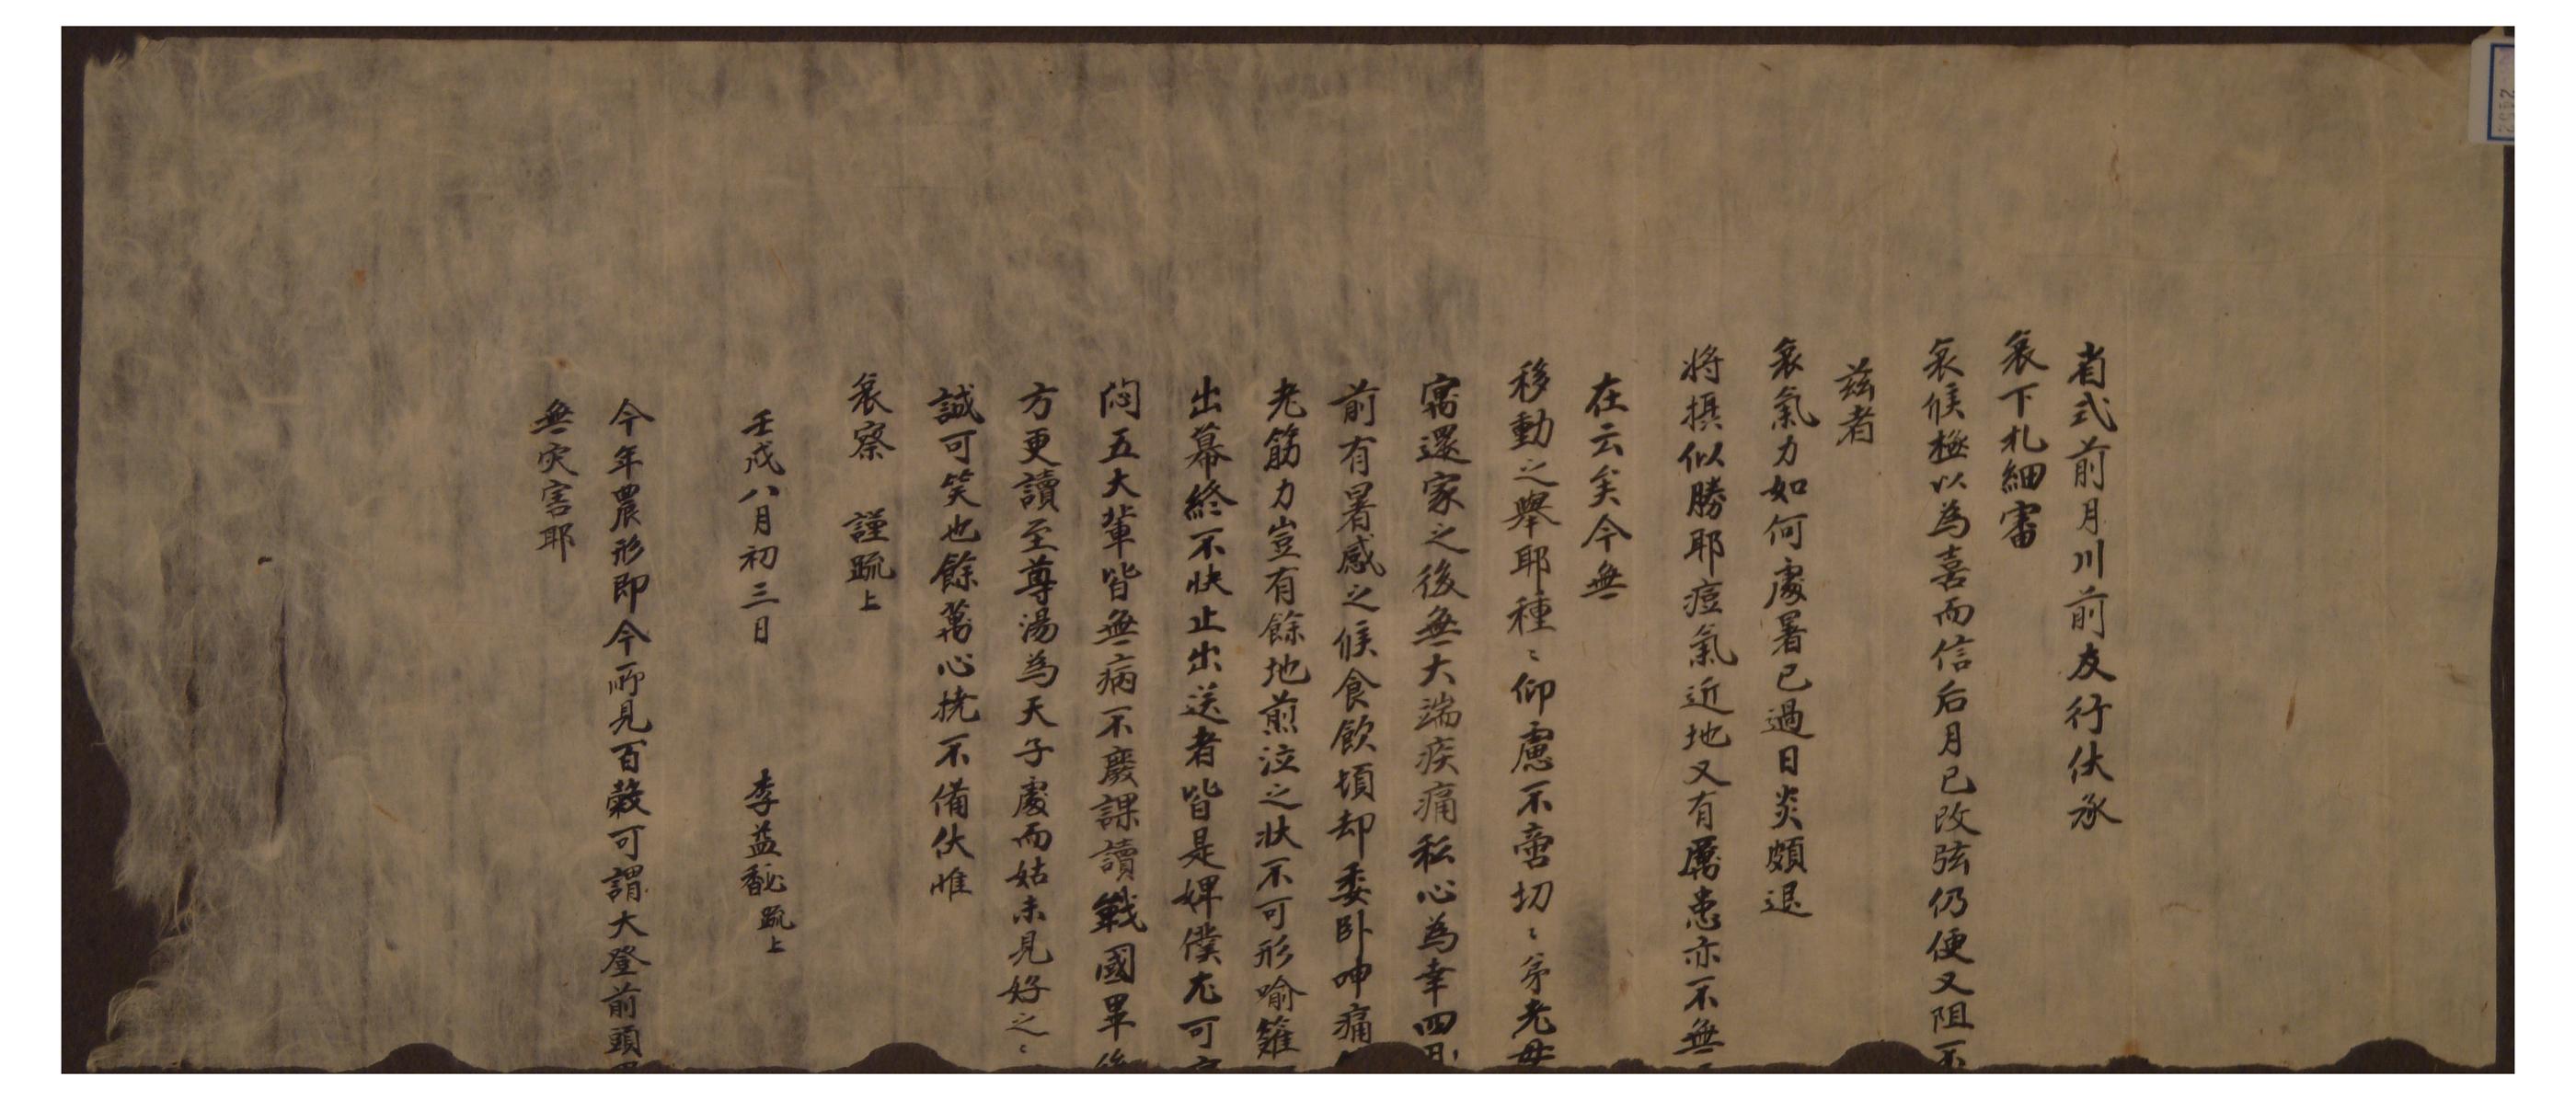 省式前月川前友行伏承
哀下札細審
哀候極以為喜而信后月已改弦仍便又阻不
兹者
哀氣力如何處暑已過日炎頗退
將攝似勝耶痘氣近地又有厲患亦不無
在云矣今無
移動之舉耶種〻仰慮不啻切〻弟老母
寓還家之後無大端疾痛私心為幸四
前有暑感之候食飲頓却委卧呻痛
老筋力豈有餘地煎泣之狀不可形喻
出幕終不快止出送者皆是婢僕尤可
悶五大輩皆無病不廢課讀戰國畢後
方更讀至尊湯為天子處而姑未見好之〻
誠可笑也餘萬心撓不備伏惟
哀察 謹疏上
壬戌八月初三日 李益馝疏上
今年農形即今所見百穀可謂大登前頭
無灾害耶